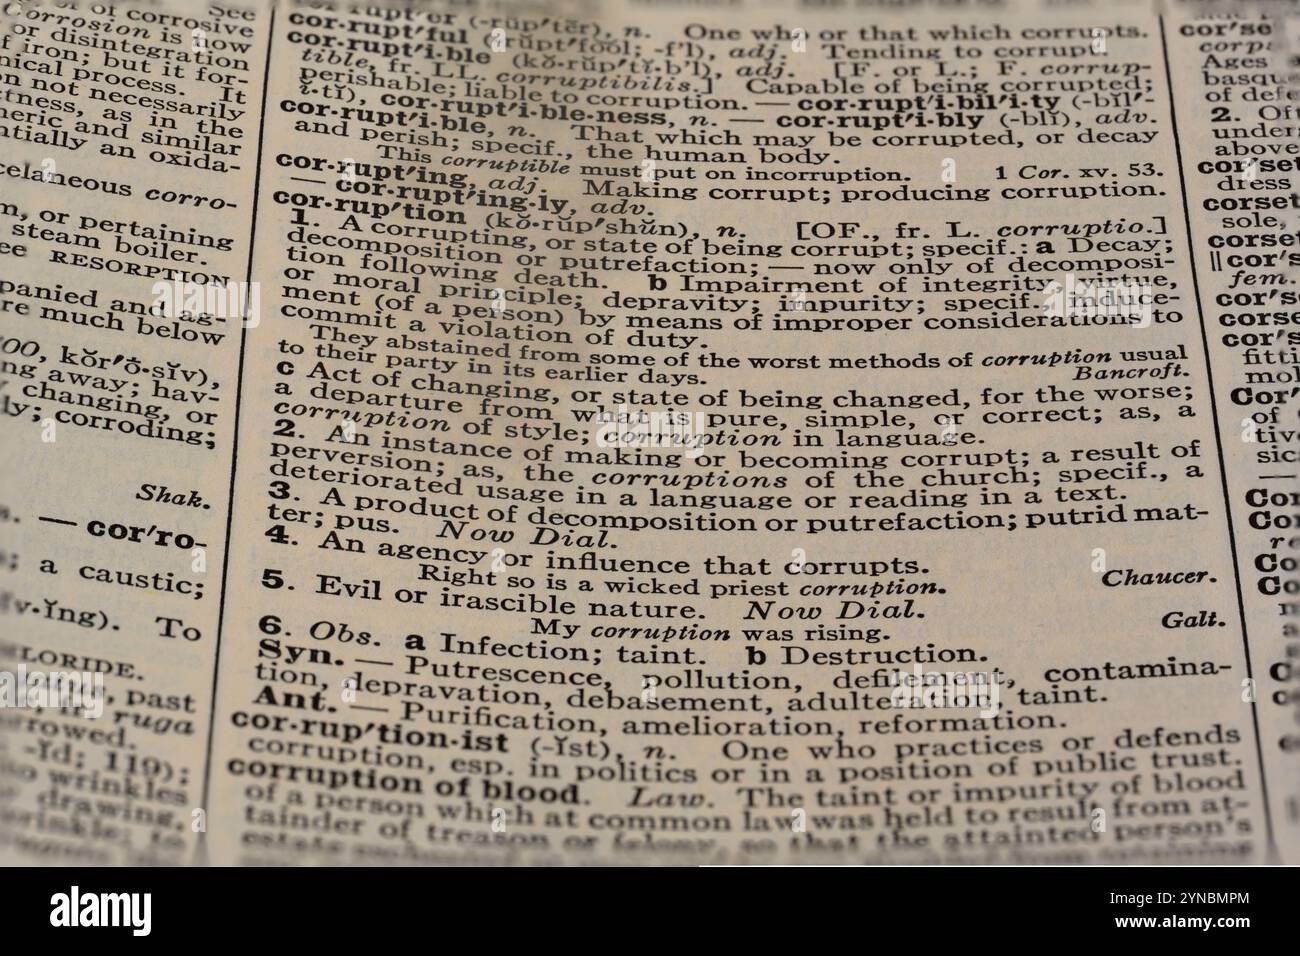 See
of corrosive
Corrosion is now
or disintegration
f iron; but it for-
nical process. It
n not necessarily
ctness, as in the
neric and similar
ntially an oxida-
celaneous corro-
m, or pertaining
steam boiler.
ee RESORPTION
panied and ag-
re much below
kŏr′ō·sĭv),
ng away; hav-
changing, or
ly; corroding;
Shak.
— cor′ro-
; a caustic;
v·ĭng). To
LORIDE.
past
ruga
rowed.
-ĭd; 119);
wrinkles
drawing.
cor·rupt′er (-rŭp′tẽr), n. One who or that which corrupts.
cor·rupt′ful (-rŭpt′fo͝ol; -f'l), adj. Tending to corrupt.
cor·rupt′i·ble (kŏ·rŭp′tĭ·b'l), adj. [F. or L.; F. corrup-
tible, fr. LL. corruptibilis.] Capable of being corrupted;
perishable; liable to corruption. — cor·rupt′i·bil′i·ty (-bĭl′-
ĭ·tĭ), cor·rupt′i·ble·ness, n. — cor·rupt′i·bly (-blĭ), adv.
cor·rupt′i·ble, n. That which may be corrupted, or decay
and perish; specif., the human body.
This corruptible must put on incorruption. 1 Cor. xv. 53.
cor·rupt′ing, adj. Making corrupt; producing corruption.
— cor·rupt′ing·ly, adv.
cor·rup′tion (kŏ·rŭp′shŭn), n. [OF., fr. L. corruptio.]
1. A corrupting, or state of being corrupt; specif.: a Decay;
decomposition or putrefaction; — now only of decomposi-
tion following death. b Impairment of integrity, virtue,
or moral principle; depravity; impurity; specif., induce-
ment (of a person) by means of improper considerations to
commit a violation of duty.
They abstained from some of the worst methods of corruption usual
to their party in its earlier days. Bancroft.
c Act of changing, or state of being changed, for the worse;
a departure from what is pure, simple, or correct; as, a
corruption of style; corruption in language.
2. An instance of making or becoming corrupt; a result of
perversion; as, the corruptions of the church; specif., a
deteriorated usage in a language or reading in a text.
3. A product of decomposition or putrefaction; putrid mat-
ter; pus. Now Dial.
4. An agency or influence that corrupts.
Right so is a wicked priest corruption. Chaucer.
5. Evil or irascible nature. Now Dial.
My corruption was rising. Galt.
6. Obs. a Infection; taint. b Destruction.
Syn. — Putrescence, pollution, defilement, contamina-
tion, depravation, debasement, adulteration, taint.
Ant. — Purification, amelioration, reformation.
cor·rup′tion·ist (-ĭst), n. One who practices or defends
corruption, esp. in politics or in a position of public trust.
corruption of blood. Law. The taint or impurity of blood
of a person which at common law was held to result from at-
tainder of treason or felony, so that the attainted person's
cor′se
corp
Ages
basqu
of defe
2. Oft
under
above
cor′set
dress
corset
sole,
corset
||cor′s
fem.
cor′s
corse
cor′s
fitti
mol
Cor′
of
tiv
sic
—
Cor
Co
re
Co
Co
alamy
Image ID: 2YNBMPM
www.alamy.com